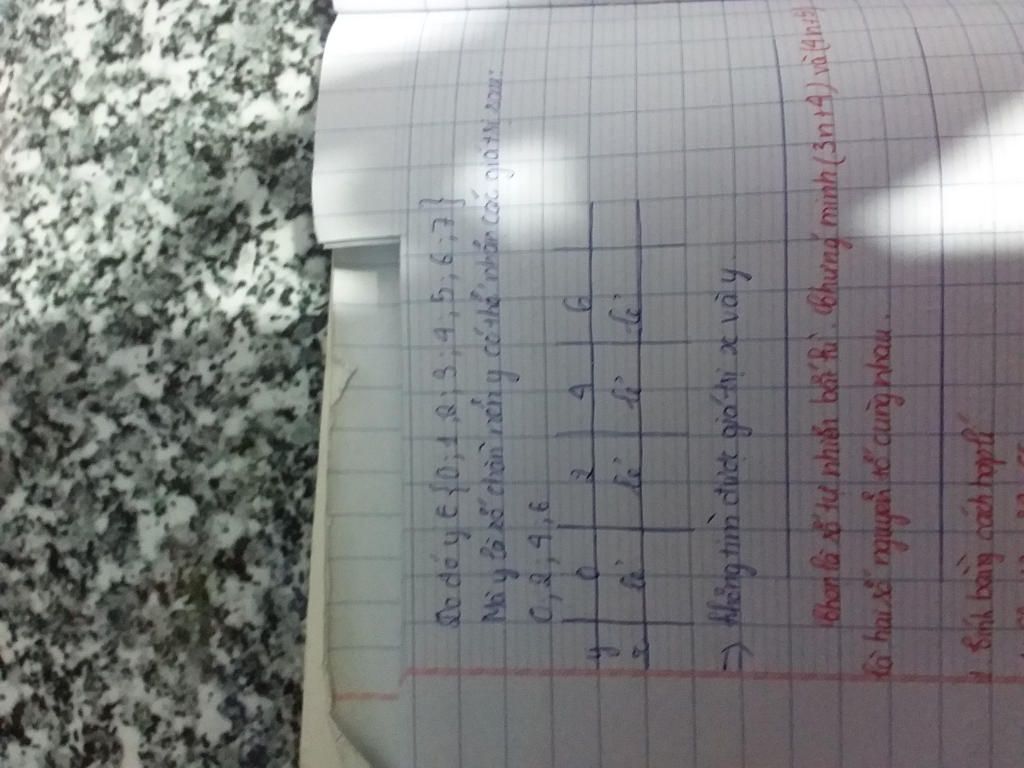 Do đó y ∈ {0; 1; 2; 3; 4; 5; 6; 7}
Mà y là số chẵn nên y có thể nhận các giá trị sau:
0; 2; 4; 6
y 0 2 4 6
x lẻ lẻ lẻ lẻ
=> không tìm được giá trị x vậy.
Cho n là số tự nhiên bất kì. Chứng minh (3n+4) và (4n+5)
là hai số nguyên tố cùng nhau.
Tính bằng cách hợp lí